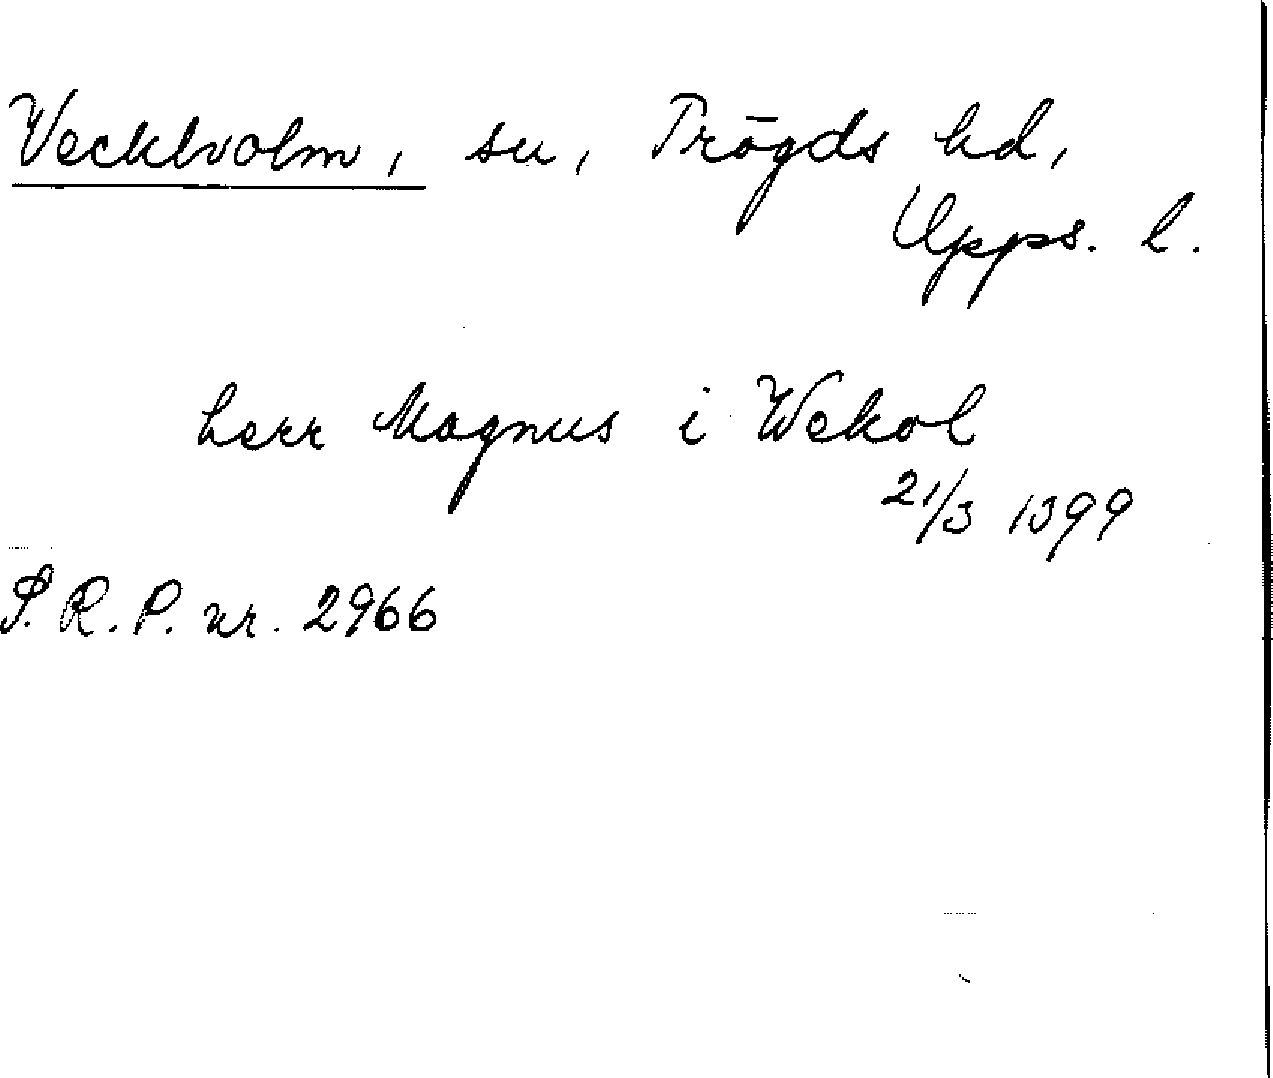 Veckholm, sn, Trögds hd,
Upps. l.
herr Magnus i Wekol
21/3 1399
S.R.P. nr. 2966